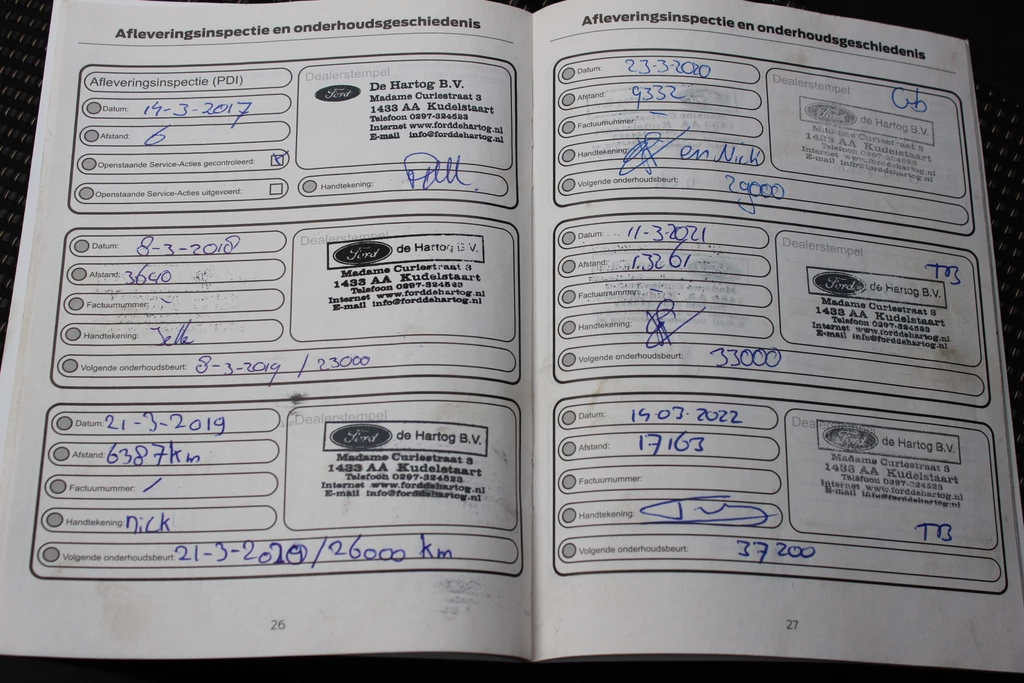 Afleveringsinspectie en onderhoudsgeschiedenis
Afleveringsinspectie (PDI)
Datum: 14-3-2017
Afstand: 6
Openstaande Service-Acties gecontroleerd:
Openstaande Service-Acties uitgevoerd:
Dealerstempel
Ford
De Hartog B.V.
Madame Curiestraat 3
1433 AA Kudelstaart
Telefoon 0297-324523
Internet www.forddehartog.nl
E-mail info@forddehartog.nl
Handtekening:
Datum: 8-3-2018
Afstand: 3640
Factuurnummer: -
Handtekening: Jelle
Volgende onderhoudsbeurt: 8-3-2019 / 23000
Dealerstempel
Ford de Hartog B.V.
Madame Curiestraat 3
1433 AA Kudelstaart
Telefoon 0297-324523
Internet www.forddehartog.nl
E-mail info@forddehartog.nl
Datum: 21-3-2019
Afstand: 6387km
Factuurnummer: /
Handtekening: nick
Volgende onderhoudsbeurt: 21-3-2020/26000 km
Dealerstempel
Ford de Hartog B.V.
Madame Curiestraat 3
1433 AA Kudelstaart
Telefoon 0297-324523
Internet www.forddehartog.nl
E-mail info@forddehartog.nl
26
Afleveringsinspectie en onderhoudsgeschiedenis
Datum: 23-3-2020
Afstand: 9332
Factuurnummer:
Handtekening: en Nick
Volgende onderhoudsbeurt: 29000
Dealerstempel
Ford de Hartog B.V.
Madame Curiestraat 3
1433 AA Kudelstaart
Telefoon 0297-324523
Internet www.forddehartog.nl
E-mail info@forddehartog.nl
Datum: 11-3-2021
Afstand: 13261
Factuurnummer:
Handtekening:
Volgende onderhoudsbeurt: 33000
Dealerstempel
TB
Ford de Hartog B.V.
Madame Curiestraat 3
1433 AA Kudelstaart
Telefoon 0297-324523
Internet www.forddehartog.nl
E-mail info@forddehartog.nl
Datum: 14-03-2022
Afstand: 17163
Factuurnummer:
Handtekening:
Volgende onderhoudsbeurt: 37200
Dealerstempel
Ford de Hartog B.V.
Madame Curiestraat 3
1433 AA Kudelstaart
Telefoon 0297-324523
Internet www.forddehartog.nl
E-mail info@forddehartog.nl
TB
27